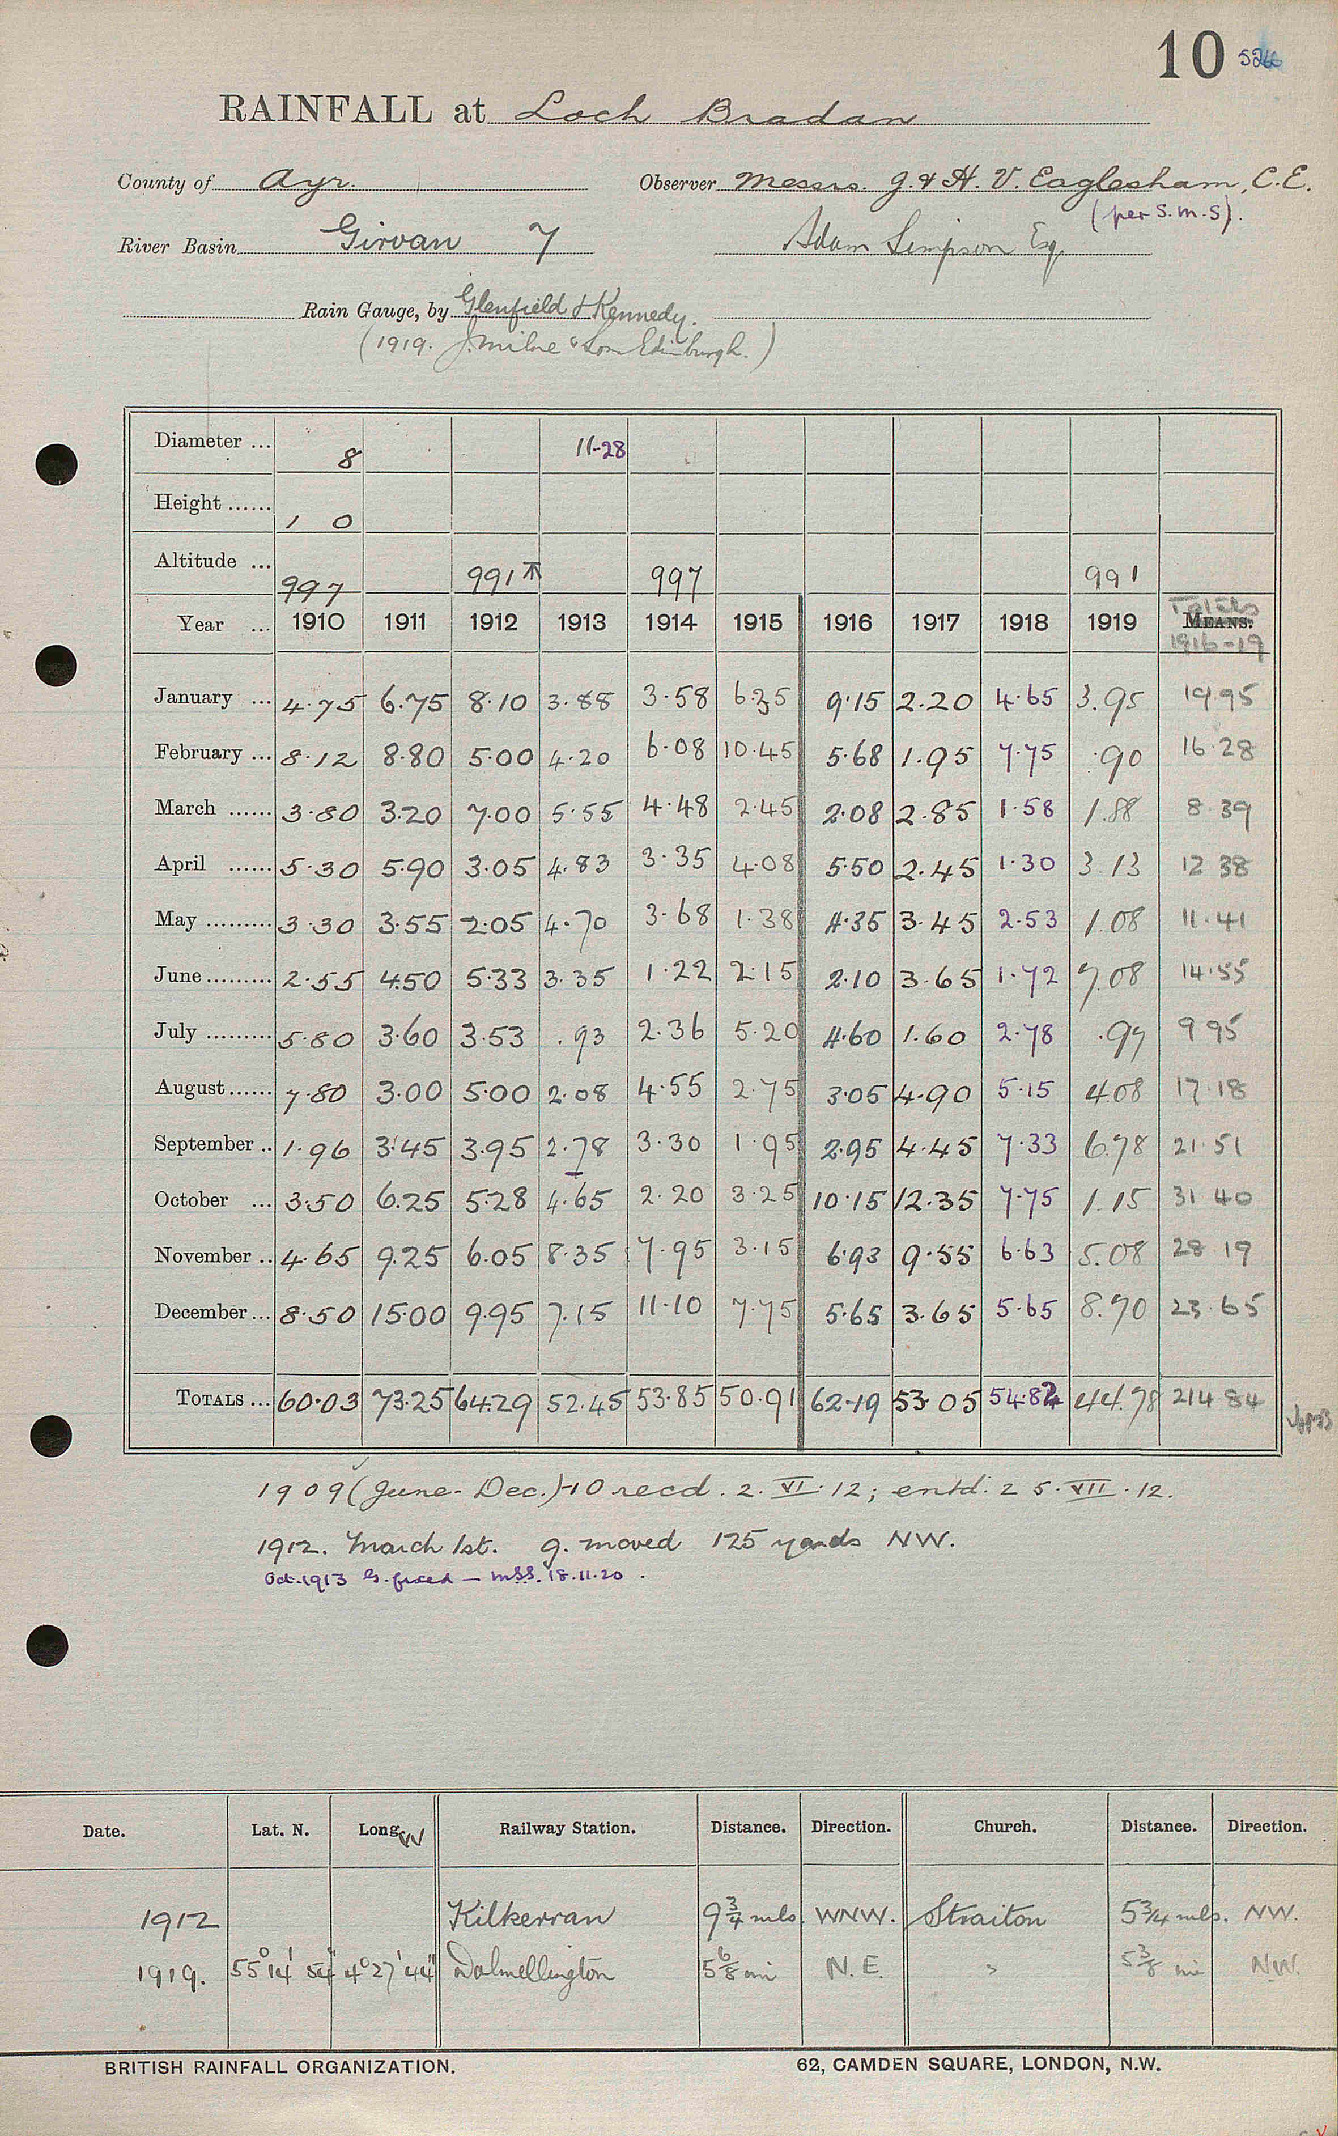 10
RAINFALL at Loch Bradan
County of Ayr. Observer Messrs. J. & H. V. Eaglesham, C.E.
(per S.M.S).
River Basin Girvan 7 Adam Simpson Esq.
Rain Gauge, by Glenfield & Kennedy.
(1919. J. Milne & Son Edinburgh.)
Diameter ... 8 11-28
Height ...... 1 0
Altitude ... 997 991 997 991
Year ... 1910 1911 1912 1913 1914 1915 1916 1917 1918 1919 Totals MEANS. 1916-19
January ... 4.75 6.75 8.10 3.88 3.58 6.35 9.15 2.20 4.65 3.95 19.95
February ... 8.12 8.80 5.00 4.20 6.08 10.45 5.68 1.95 7.75 .90 16.28
March ...... 3.80 3.20 7.00 5.55 4.48 2.45 2.08 2.85 1.58 1.88 8.39
April ...... 5.30 5.90 3.05 4.83 3.35 4.08 5.50 2.45 1.30 3.13 12 38
May ......... 3.30 3.55 2.05 4.70 3.68 1.38 4.35 3.45 2.53 1.08 11.41
June ......... 2.55 4.50 5.33 3.35 1.22 2.15 2.10 3.65 1.72 7.08 14.55
July ......... 5.80 3.60 3.53 .93 2.36 5.20 4.60 1.60 2.78 .97 9 95
August ...... 7.80 3.00 5.00 2.08 4.55 2.75 3.05 4.90 5.15 4.08 17.18
September .. 1.96 3.45 3.95 2.78 3.30 1.95 2.95 4.45 7.33 6.78 21.51
October ... 3.50 6.25 5.28 4.65 2.20 3.25 10.15 12.35 7.75 1.15 31 40
November .. 4.65 9.25 6.05 8.35 7.95 3.15 6.93 9.55 6.63 5.08 28 19
December ... 8.50 15.00 9.95 7.15 11.10 7.75 5.65 3.65 5.65 8.70 23.65
TOTALS ... 60.03 73.25 64.29 52.45 53.85 50.91 62.19 53.05 54.82 44.78 214 84
1909 (June-Dec.)-10 recd. 2.VI.12; entd. 25.VII.12.
1912. March 1st. g. moved 125 yards NW.
Oct. 1913 G. fixed — MSS. 18.11.20.
Date. Lat. N. Long. W Railway Station. Distance. Direction. Church. Distance. Direction.
1912 Kilkerran 9 3/4 mls. WNW. Straiton 5 3/4 mls. NW.
1919. 55° 14' 54" 4° 27' 44" Dalmellington 5 6/8 mi N.E. " 5 3/8 mi NW.
BRITISH RAINFALL ORGANIZATION. 62, CAMDEN SQUARE, LONDON, N.W.